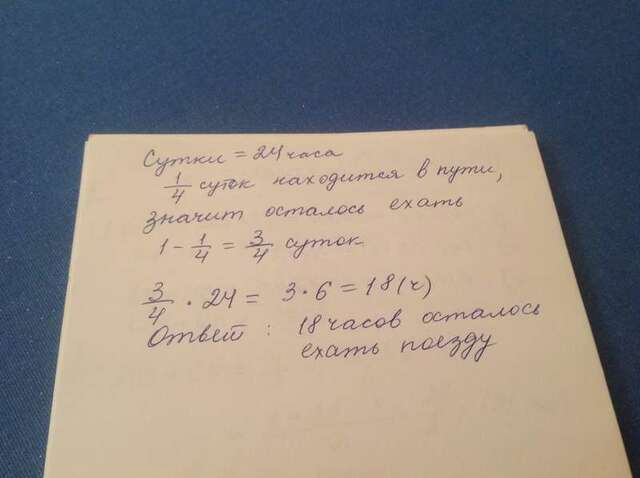 Сутки = 24 часа
1/4 суток находится в пути,
значит осталось ехать
1 - 1/4 = 3/4 суток
3/4 · 24 = 3 · 6 = 18 (ч)
Ответ : 18 часов осталось
ехать поезду